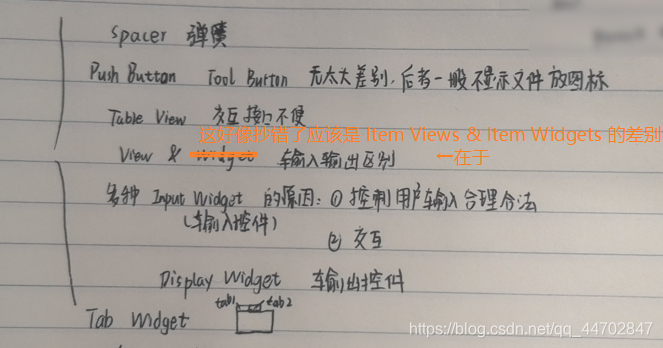 Spacer 弹簧
Push Button Tool Button 无太大差别,后者一般不显示文件 放图标
Table View 交互接口不便
这好像抄错了应该是 Item Views & Item Widgets 的差别
View & Widget 输入输出区别 ←在于
多种 Input Widget 的原因: ① 控制用户输入合理合法
(输入控件)
② 交互
Display Widget 输出控件
tab1 tab2
Tab Widget
https://blog.csdn.net/qq_44702847